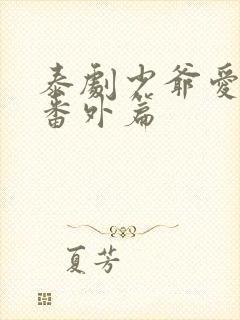 泰劇少爺愛
番外篇
夏芳